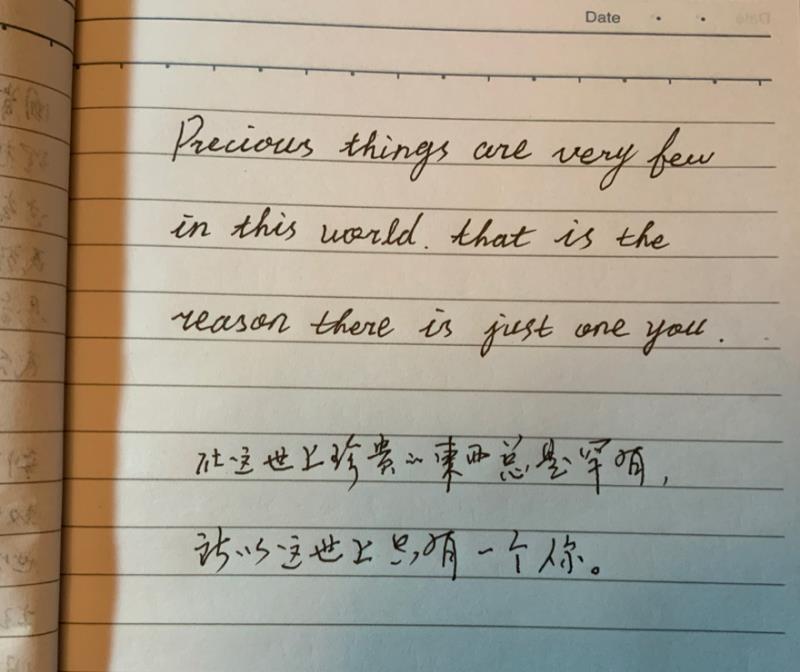 Date
Precious things are very few
in this world. that is the
reason there is just one you.
在这世上珍贵的東西总是罕有,
所以这世上只有一个你。